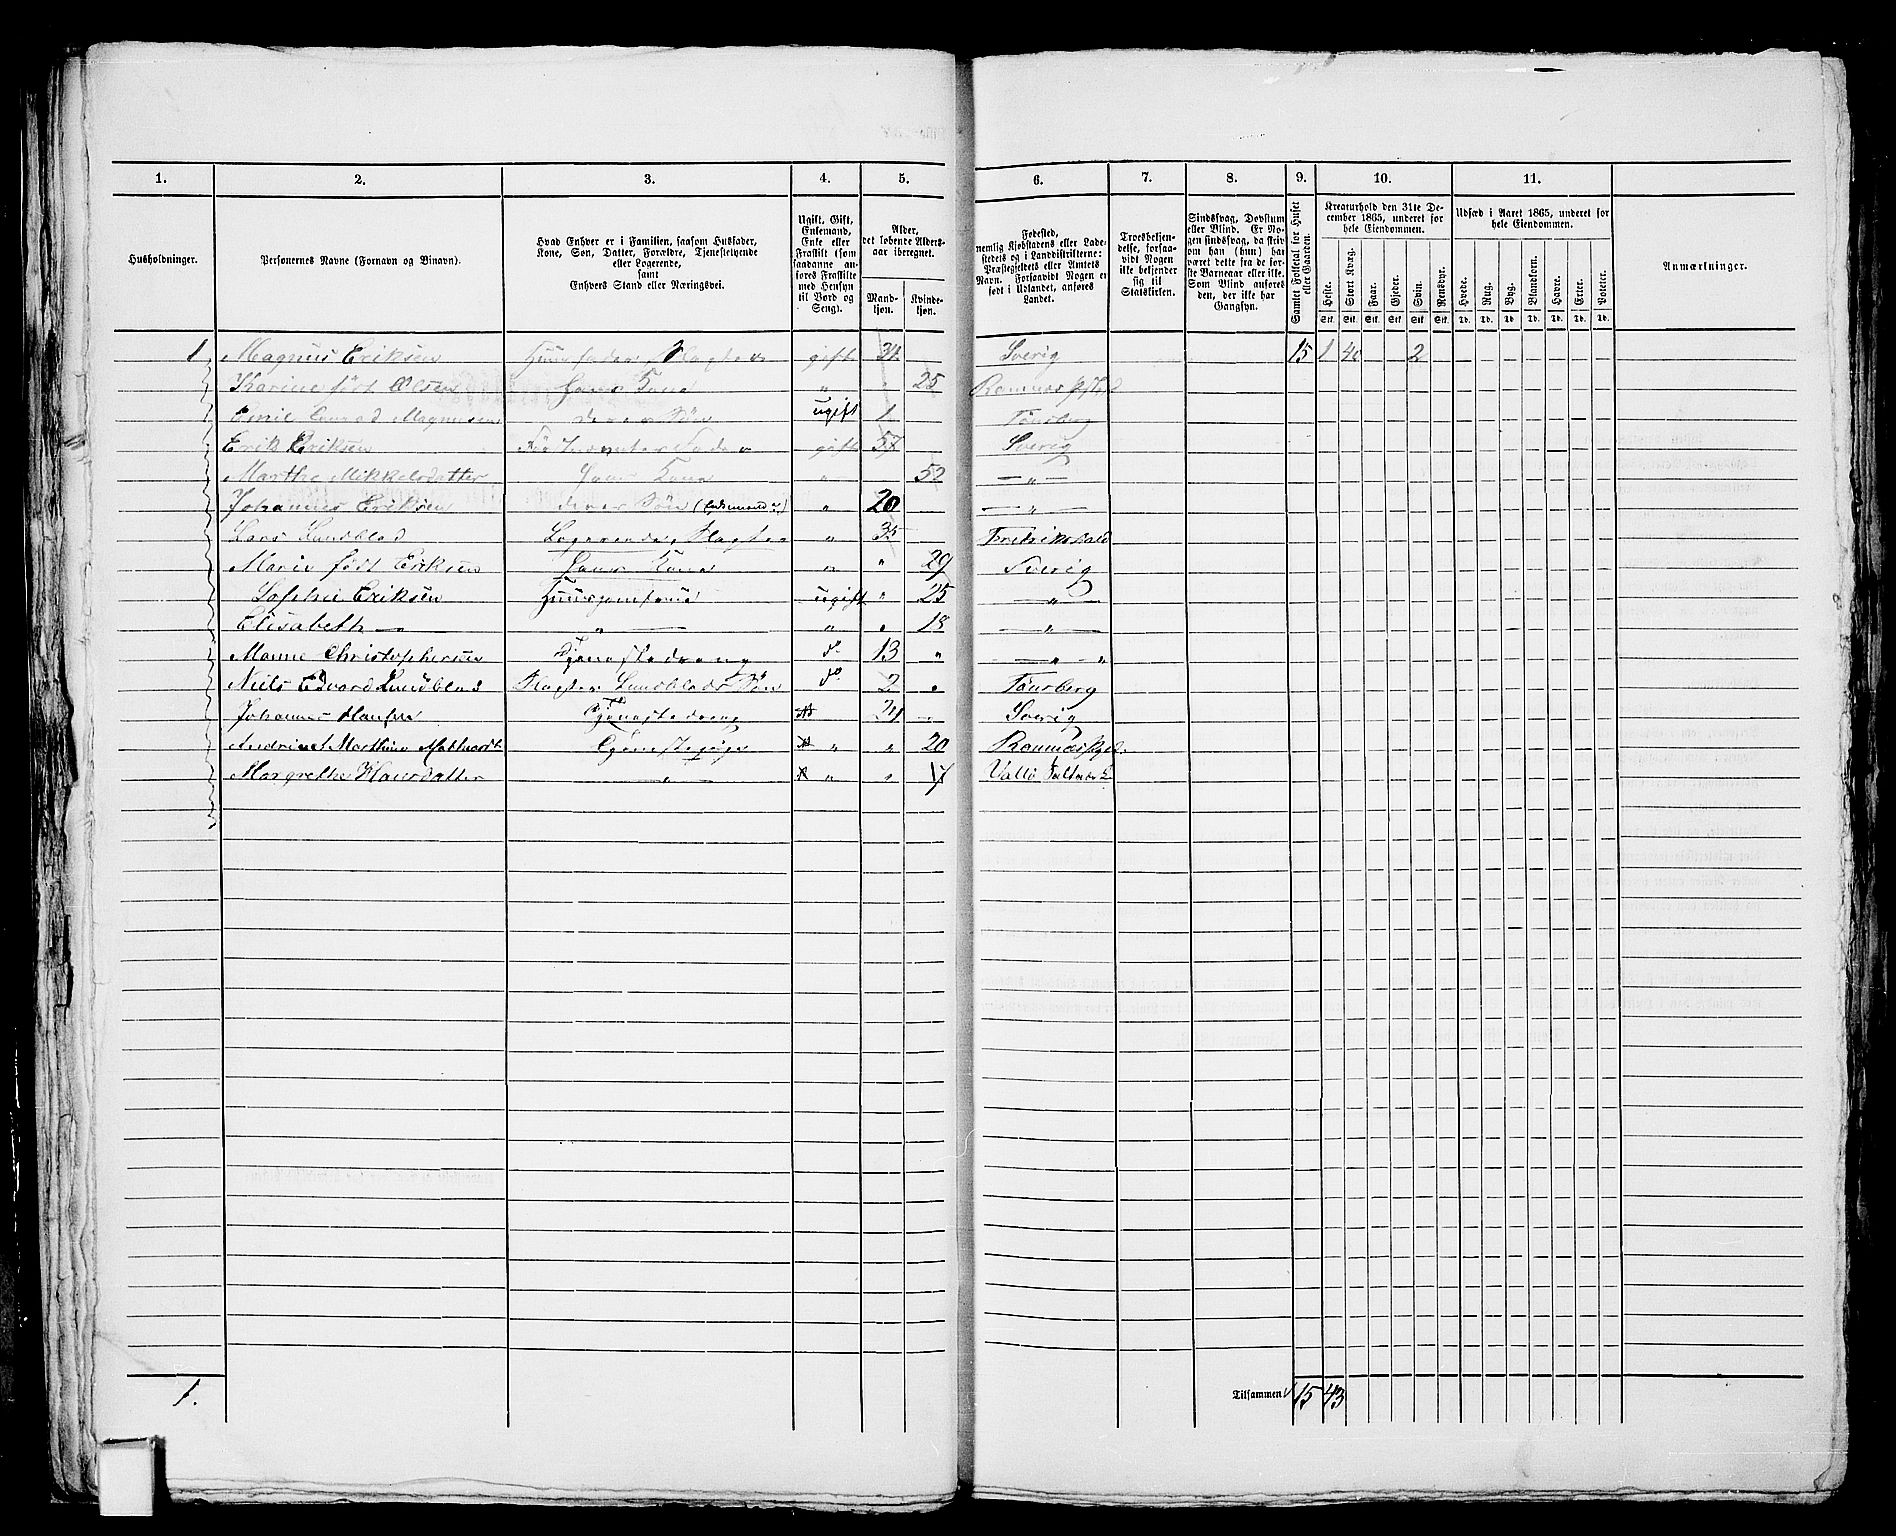 1. 2. 3. 4. 5. 6. 7. 8. 9. 10. 11.
Husholdninger.
Personernes Navne (Fornavn og Binavn).
Hvad Enhver er i Familien, saasom Husfader,
Kone, Søn, Datter, Forældre, Tjenestetyende
eller Logerende,
samt
Enhvers Stand eller Næringsvei.
Ugift, Gift,
Enkemand,
Enke eller
Fraskilt (som
saadanne an-
føres Fraskilte
med Hensyn
til Bord og
Seng).
Alder,
det løbende Alders-
aar iberegnet.
Mand-
kjøn.
Kvinde-
kjøn.
Fødested,
nemlig Kjøbstadens eller Lade-
stedets og i Landdistrikterne:
Præstegjeldets eller Amtets
Navn. Forsaavidt Nogen er
født i Udlandet, anføres
Landet.
Troesbekjen-
delse, forsaa-
vidt Nogen
ikke bekjender
sig til
Statskirken.
Sindssvag, Døvstum
eller Blind. Er No-
gen sindssvag, da skriv
om han (hun) har
været dette fra de før-
ste Barneaar eller ikke.
Som Blind anføres
den, der ikke har
Gangsyn.
Samlet Folketal for Huset
eller Gaarden.
Kreaturhold den 31te De-
cember 1865, underet for
hele Eiendommen.
Heste. Stort Kvæg. Faar. Gjeder. Svin. Rensdyr.
Stk. Stk. Stk. Stk. Stk. Stk.
Udsæd i Aaret 1865, underet for
hele Eiendommen.
Hvede. Rug. Byg. Blandkorn. Havre. Erter. Poteter.
Td. Td. Td. Td. Td. Td. Td.
Anmærkninger.
1 Magnus Eriksen Huusfader Slagter gift 34 Sverig 15 1 40 2
Karine født Olsen Hans Kone „ 25 Ramnæs
Emil Conrad Magnussen deres Søn ugift 1 Tønsberg
Erik Eriksen Fader gift 57 Sverig
Marthe Mikkelsdatter Hans Kone „ 52 — „ —
Johannes Eriksen deres Søn „ 20 — „ —
Lars Lundblad Logerende, Slagter „ 35 Fredrikshald
Marie født Eriksen Hans Kone „ „ 29 Sverig
Sophie Eriksen ugift „ 25 — „ —
Elisabeth — — „ — „ „ 18 — „ —
Manne Christophersen Tjenestedreng do 13 „ — „ — „
Niels Edvard Lundblad Slagter Lundblads Søn do 2 „ Tønsberg
Johannes Hansen Tjenestedreng 24 „ Sverig
Andrine Marthine Tjenestepige „ „ 20 Ramnæs
Margrethe Hansdatter — „ — „ „ 17 Vallø
1. Tilsammen 15 43